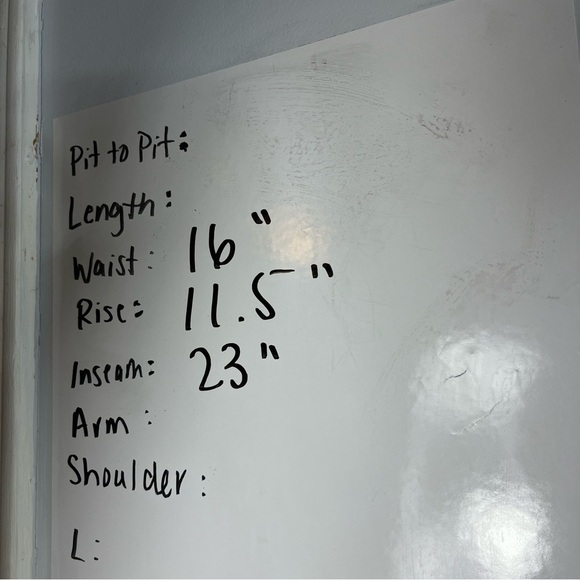 Pit to Pit:
Length:
Waist: 16"
Rise: 11.5"
Inseam: 23"
Arm:
Shoulder:
L: